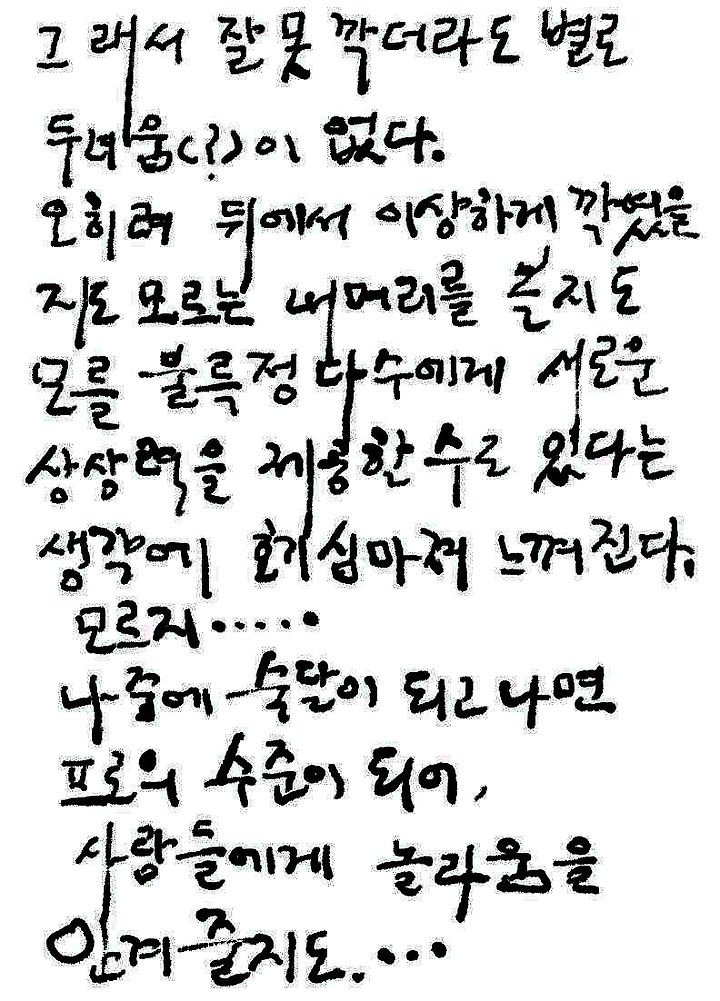 그래서 잘못 깍더라도 별로
두려움(?)이 없다.
오히려 뒤에서 이상하게 깍였을
지도 모르는 내머리를 볼지도
모를 불특정 다수에게 새로운
상상력을 제공할 수도 있다는
생각에 호기심마저 느껴진다.
모르지.....
나중에 숙달이 되고나면
프로의 수준이 되어,
사람들에게 놀라움을
안겨줄지도....